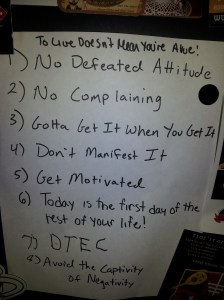 To Live Doesn't Mean You're Alive!
1) No Defeated Attitude
2) No Complaining
3) Gotta Get It When You Get It
4) Don't Manifest It
5) Get Motivated
6) Today is the first day of the
rest of your life!
7) DTEC
8) Avoid the Captivity
Of Negativity